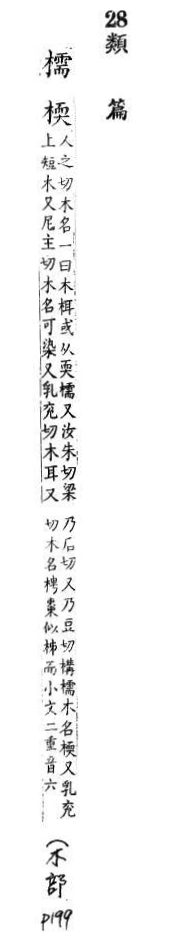 28類篇
檽 㮕 人之切木名一曰木栮或从耎檽又汝朱切梁
上短木又尼主切木名可染又乳兗切木耳又
乃后切又乃豆切構檽木名㮕又乳兗
切木名梬棗似柹而小文二重音六
(木部
P199